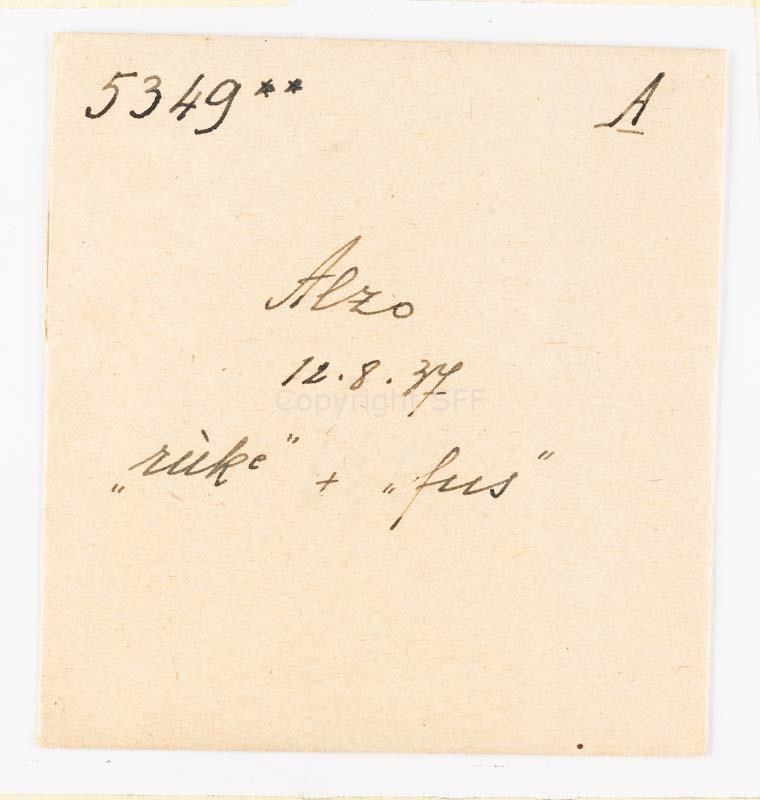 5349** A
Alzo
12.8.37
Copyright SFF
„rùkᵉ” + „fus”